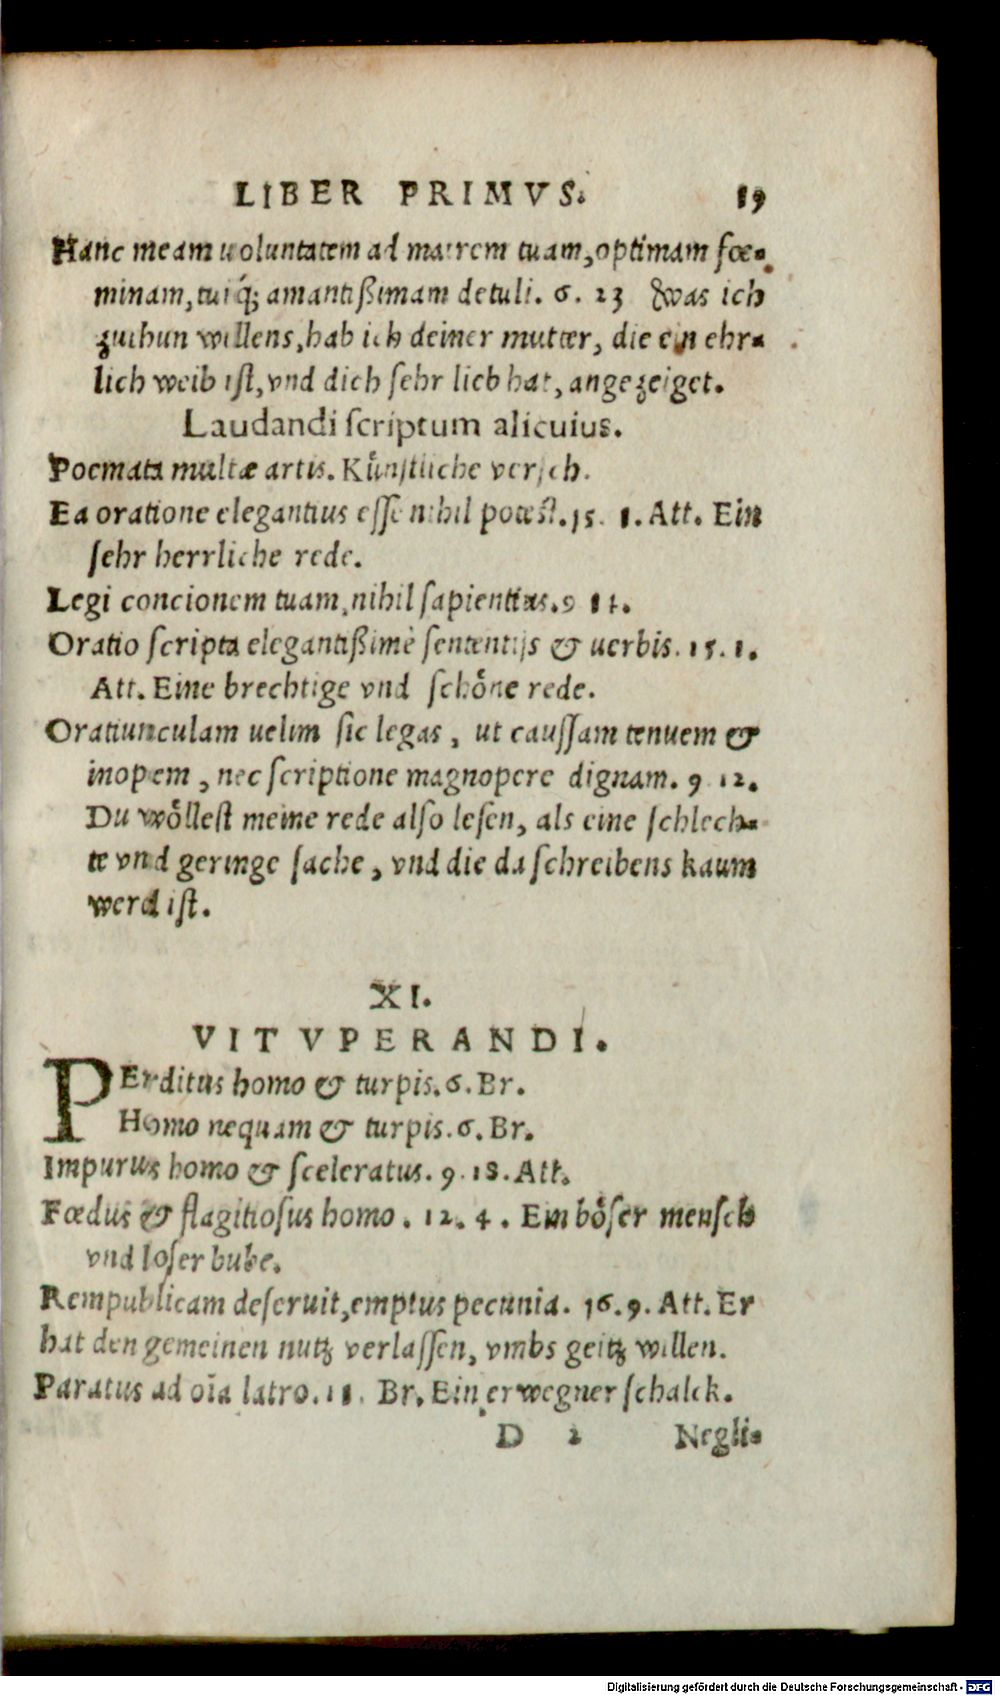 LIBER PRIMVS. 19
Hanc meam uoluntatem ad matrem tuam, optimam fœ-
minam, tuiq́; amantißimam detuli. 6. 23 Was ich
zuthun willens, hab ich deiner mutter, die ein ehr-
lich weib ist, vnd dich sehr lieb hat, angezeiget.
Laudandi scriptum alicuius.
Poemata multæ artis. Kůnstliche versch.
Ea oratione elegantius esse nihil potest. 15. 1. Att. Ein
sehr herrliche rede.
Legi concionem tuam, nihil sapientius. 9 14.
Oratio scripta elegantißimè sententijs & uerbis. 15. 1.
Att. Eine brechtige vnd schöne rede.
Oratiunculam uelim sic legas, ut caussam tenuem &
inopem, nec scriptione magnopere dignam. 9 12.
Du wöllest meine rede also lesen, als eine schlech-
te vnd geringe sache, vnd die da schreibens kaum
werd ist.
XI.
VITVPERANDI.
PErditus homo & turpis. 6. Br.
Homo nequam & turpis. 6. Br.
Impurus homo & sceleratus. 9. 18. Att.
Fœdus & flagitiosus homo. 12. 4. Ein böser mensch
vnd loser bube.
Rempublicam deseruit, emptus pecunia. 16. 9. Att. Er
hat den gemeinen nutz verlassen, vmbs geitz willen.
Paratus ad oīa latro. 11. Br. Ein erwegner schalck.
D 2 Negli-
Digitalisierung gefördert durch die Deutsche Forschungsgemeinschaft - DFG